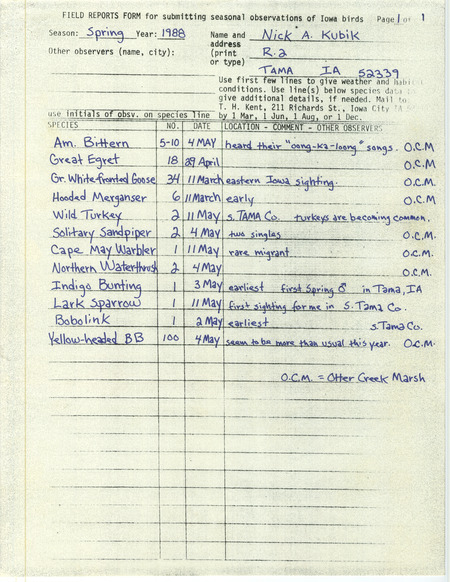 FIELD REPORTS FORM for submitting seasonal observations of Iowa birds Page 1 of 1
Season: Spring Year: 1988 Name and address (print or type) Nick A. Kubik
Other observers (name, city): R.2
TAMA IA 52339
Use first few lines to give weather and habitat
conditions. Use line(s) below species data to
give additional details, if needed. Mail to
T. H. Kent, 211 Richards St., Iowa City IA
use initials of obsv. on species line by 1 Mar, 1 Jun, 1 Aug, or 1 Dec.
SPECIES NO. DATE LOCATION - COMMENT - OTHER OBSERVERS
Am. Bittern 5-10 4 MAY heard their "oong-ka-loong" songs. O.C.M
Great Egret 18 29 April O.C.M
Gr. White-fronted Goose 34 11 March eastern Iowa sighting. O.C.M.
Hooded Merganser 6 11 March early O.C.M.
Wild Turkey 2 11 May S. TAMA Co. turkeys are becoming common.
Solitary Sandpiper 2 4 May two singles O.C.M.
Cape May Warbler 1 11 May rare migrant O.C.M.
Northern Waterthrush 2 4 May O.C.M.
Indigo Bunting 1 3 May earliest first Spring ♂ in Tama, IA
Lark Sparrow 1 11 May first sighting for me in S. Tama Co.
Bobolink 1 2 May earliest S. Tama Co.
Yellow-headed BB 100 4 May seem to be more than usual this year. O.C.M.
O.C.M. = Otter Creek Marsh